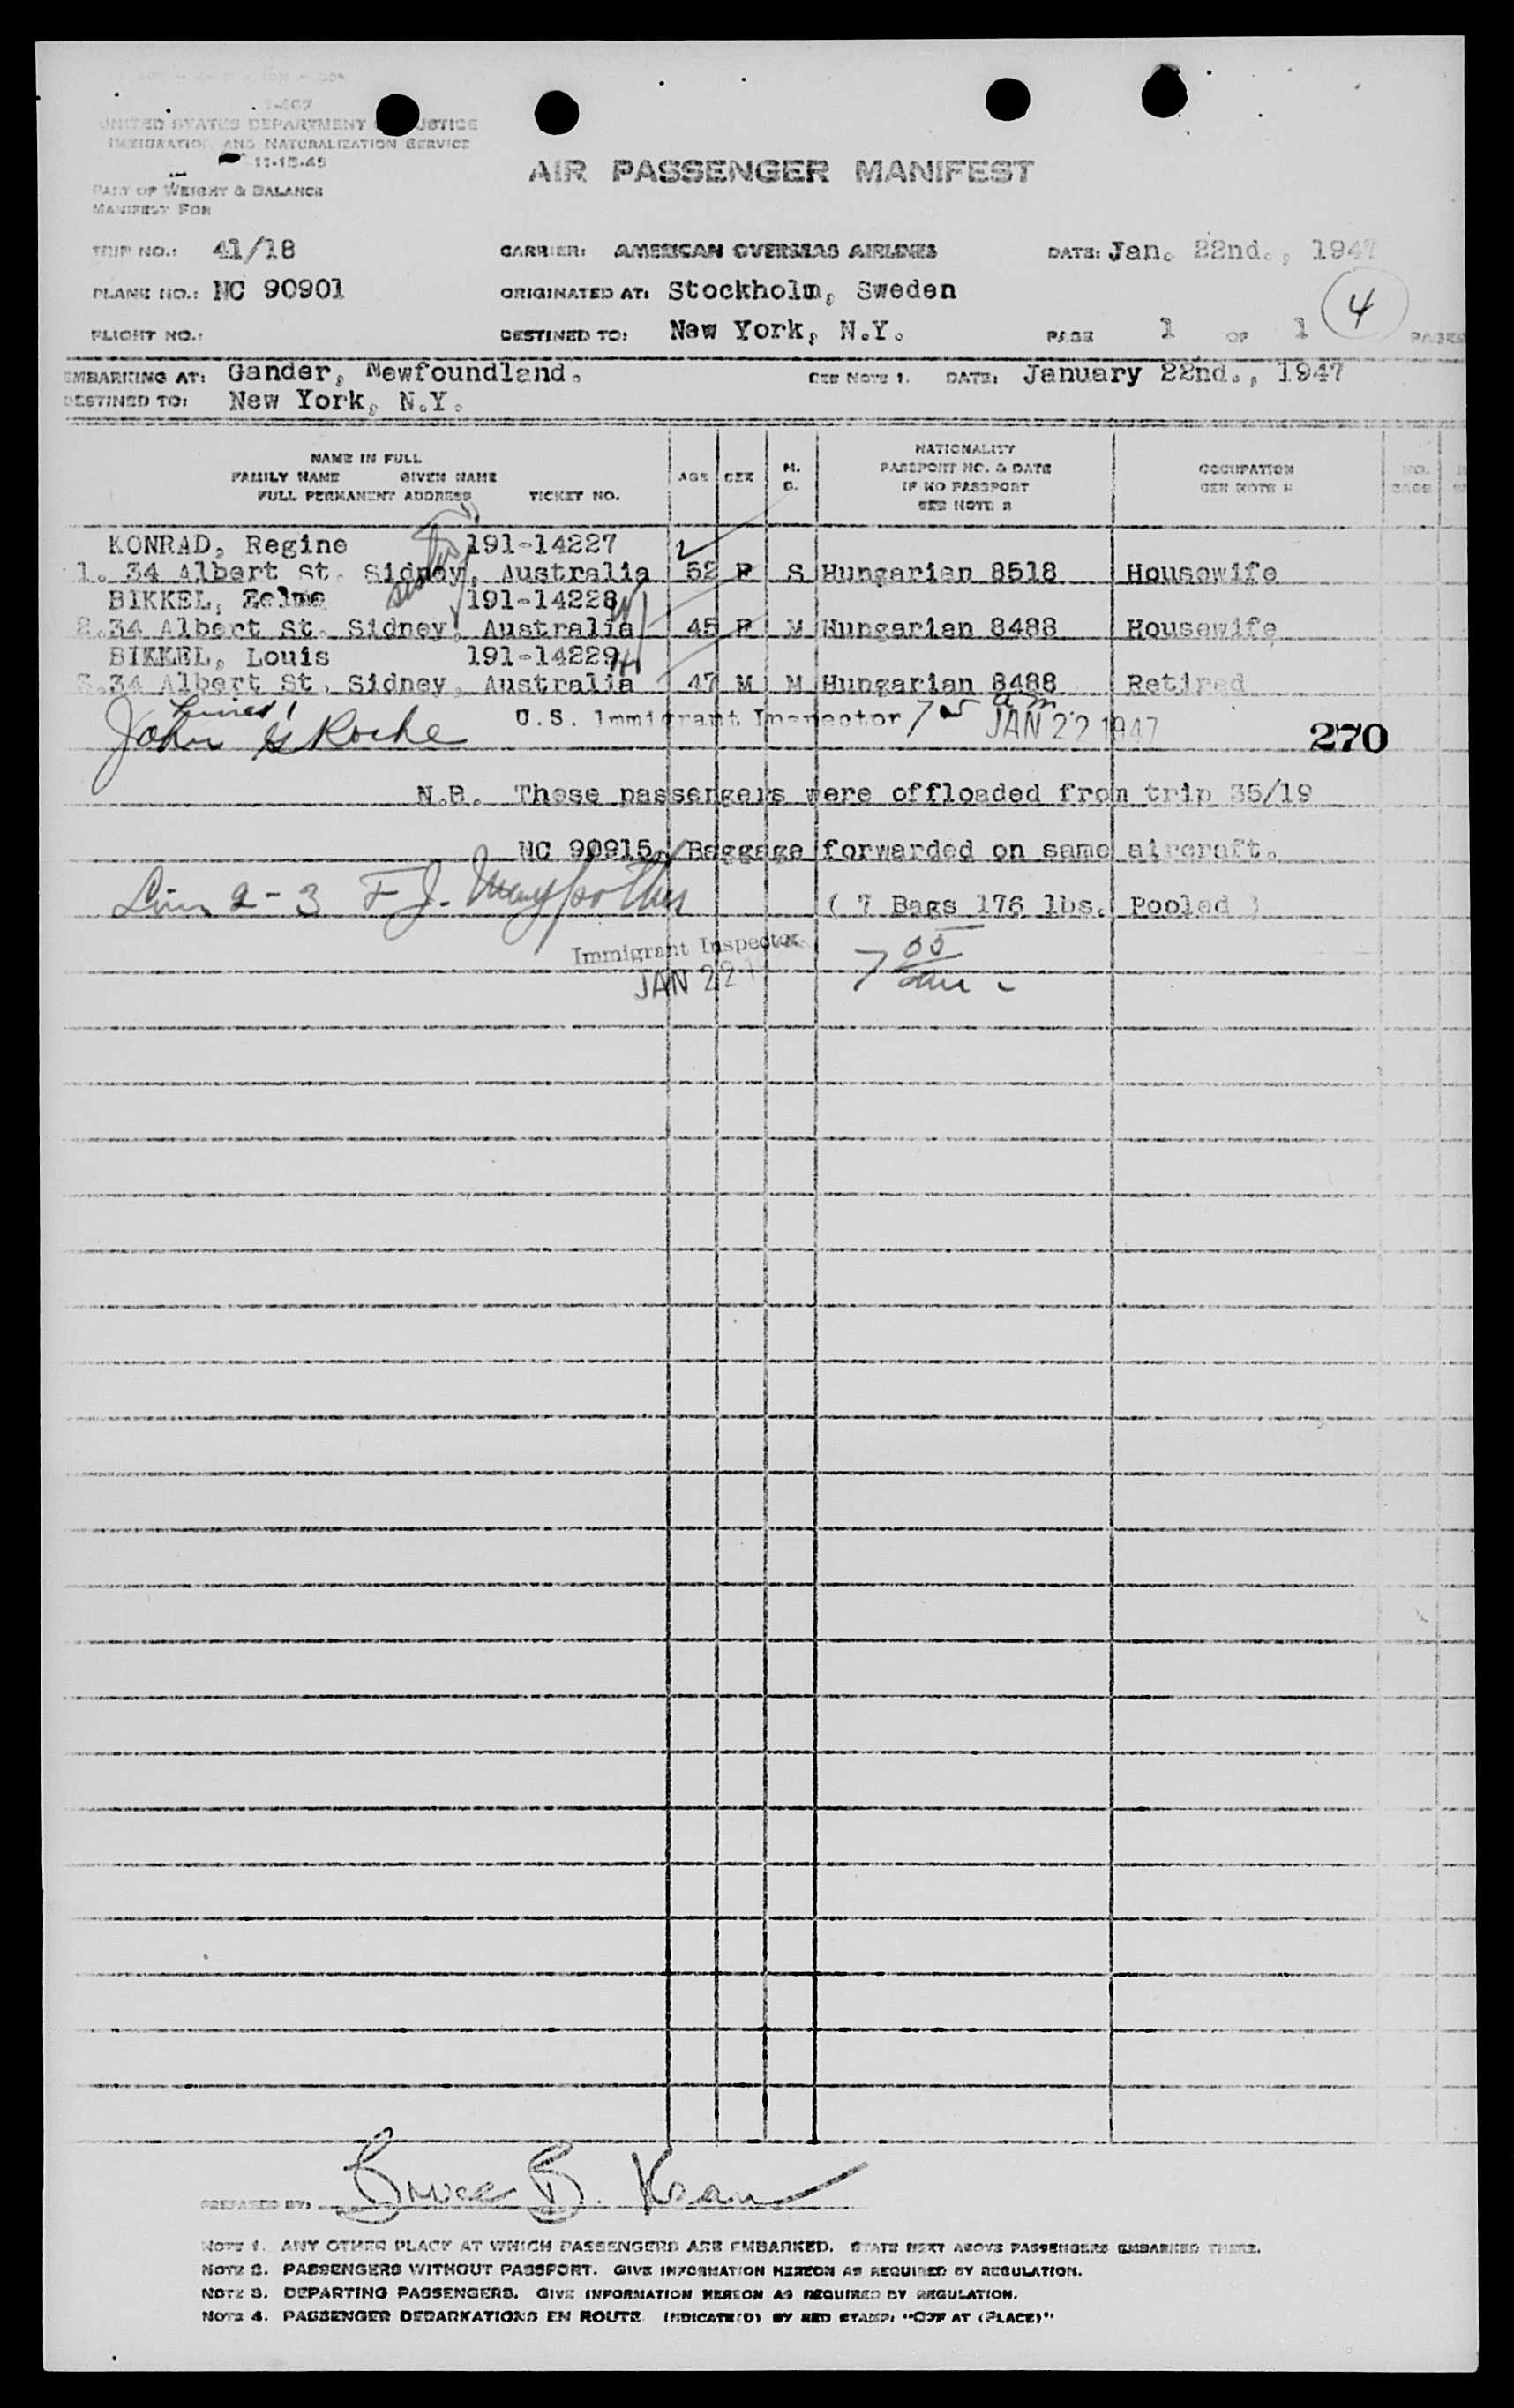 I-467
UNITED STATES DEPARTMENT OF JUSTICE
IMMIGRATION AND NATURALIZATION SERVICE
11-15-45
AIR PASSENGER MANIFEST
PART OF WEIGHT & BALANCE
MANIFEST FOR
TRIP NO.: 41/18 CARRIER: AMERICAN OVERSEAS AIRLINES DATE: Jan. 22nd., 1947
PLANE NO.: NC 90901 ORIGINATED AT: Stockholm, Sweden 4
FLIGHT NO.: DESTINED TO: New York, N.Y. PAGE 1 OF 1 PAGES
EMBARKING AT: Gander, Newfoundland. SEE NOTE 1. DATE: January 22nd., 1947
DESTINED TO: New York, N.Y.
NAME IN FULL
FAMILY NAME GIVEN NAME
FULL PERMANENT ADDRESS TICKET NO.
AGE SEX M. S.
NATIONALITY
PASSPORT NO. & DATE
IF NO PASSPORT
SEE NOTE 2
OCCUPATION
SEE NOTE 3
NO. BAGS
KONRAD, Regine 191-14227
1. 34 Albert St. Sidney, Australia 52 F S Hungarian 8518 Housewife
BIKKEL, Zelma 191-14228
2.34 Albert St. Sidney, Australia 45 F M Hungarian 8488 Housewife
BIKKEL, Louis 191-14229
3.34 Albert St. Sidney, Australia 47 M M Hungarian 8488 Retired
Lines 1
John G Roche U.S. Immigrant Inspector 7 05 a.m. JAN 22 1947 270
N.B. These passengers were offloaded from trip 35/19
NC 90915. Baggage forwarded on same aircraft.
Lines 2-3 F J. ( 7 Bags 176 lbs. Pooled )
Immigrant Inspector
JAN 22 7 05 am
PREPARED BY: Bruce B.
NOTE 1. ANY OTHER PLACE AT WHICH PASSENGERS ARE EMBARKED. STATE NEXT ABOVE PASSENGERS EMBARKED THERE.
NOTE 2. PASSENGERS WITHOUT PASSPORT. GIVE INFORMATION HEREON AS REQUIRED BY REGULATION.
NOTE 3. DEPARTING PASSENGERS. GIVE INFORMATION HEREON AS REQUIRED BY REGULATION.
NOTE 4. PASSENGER DEBARKATIONS EN ROUTE. INDICATE(D) BY RED STAMP: "OFF AT (PLACE)"